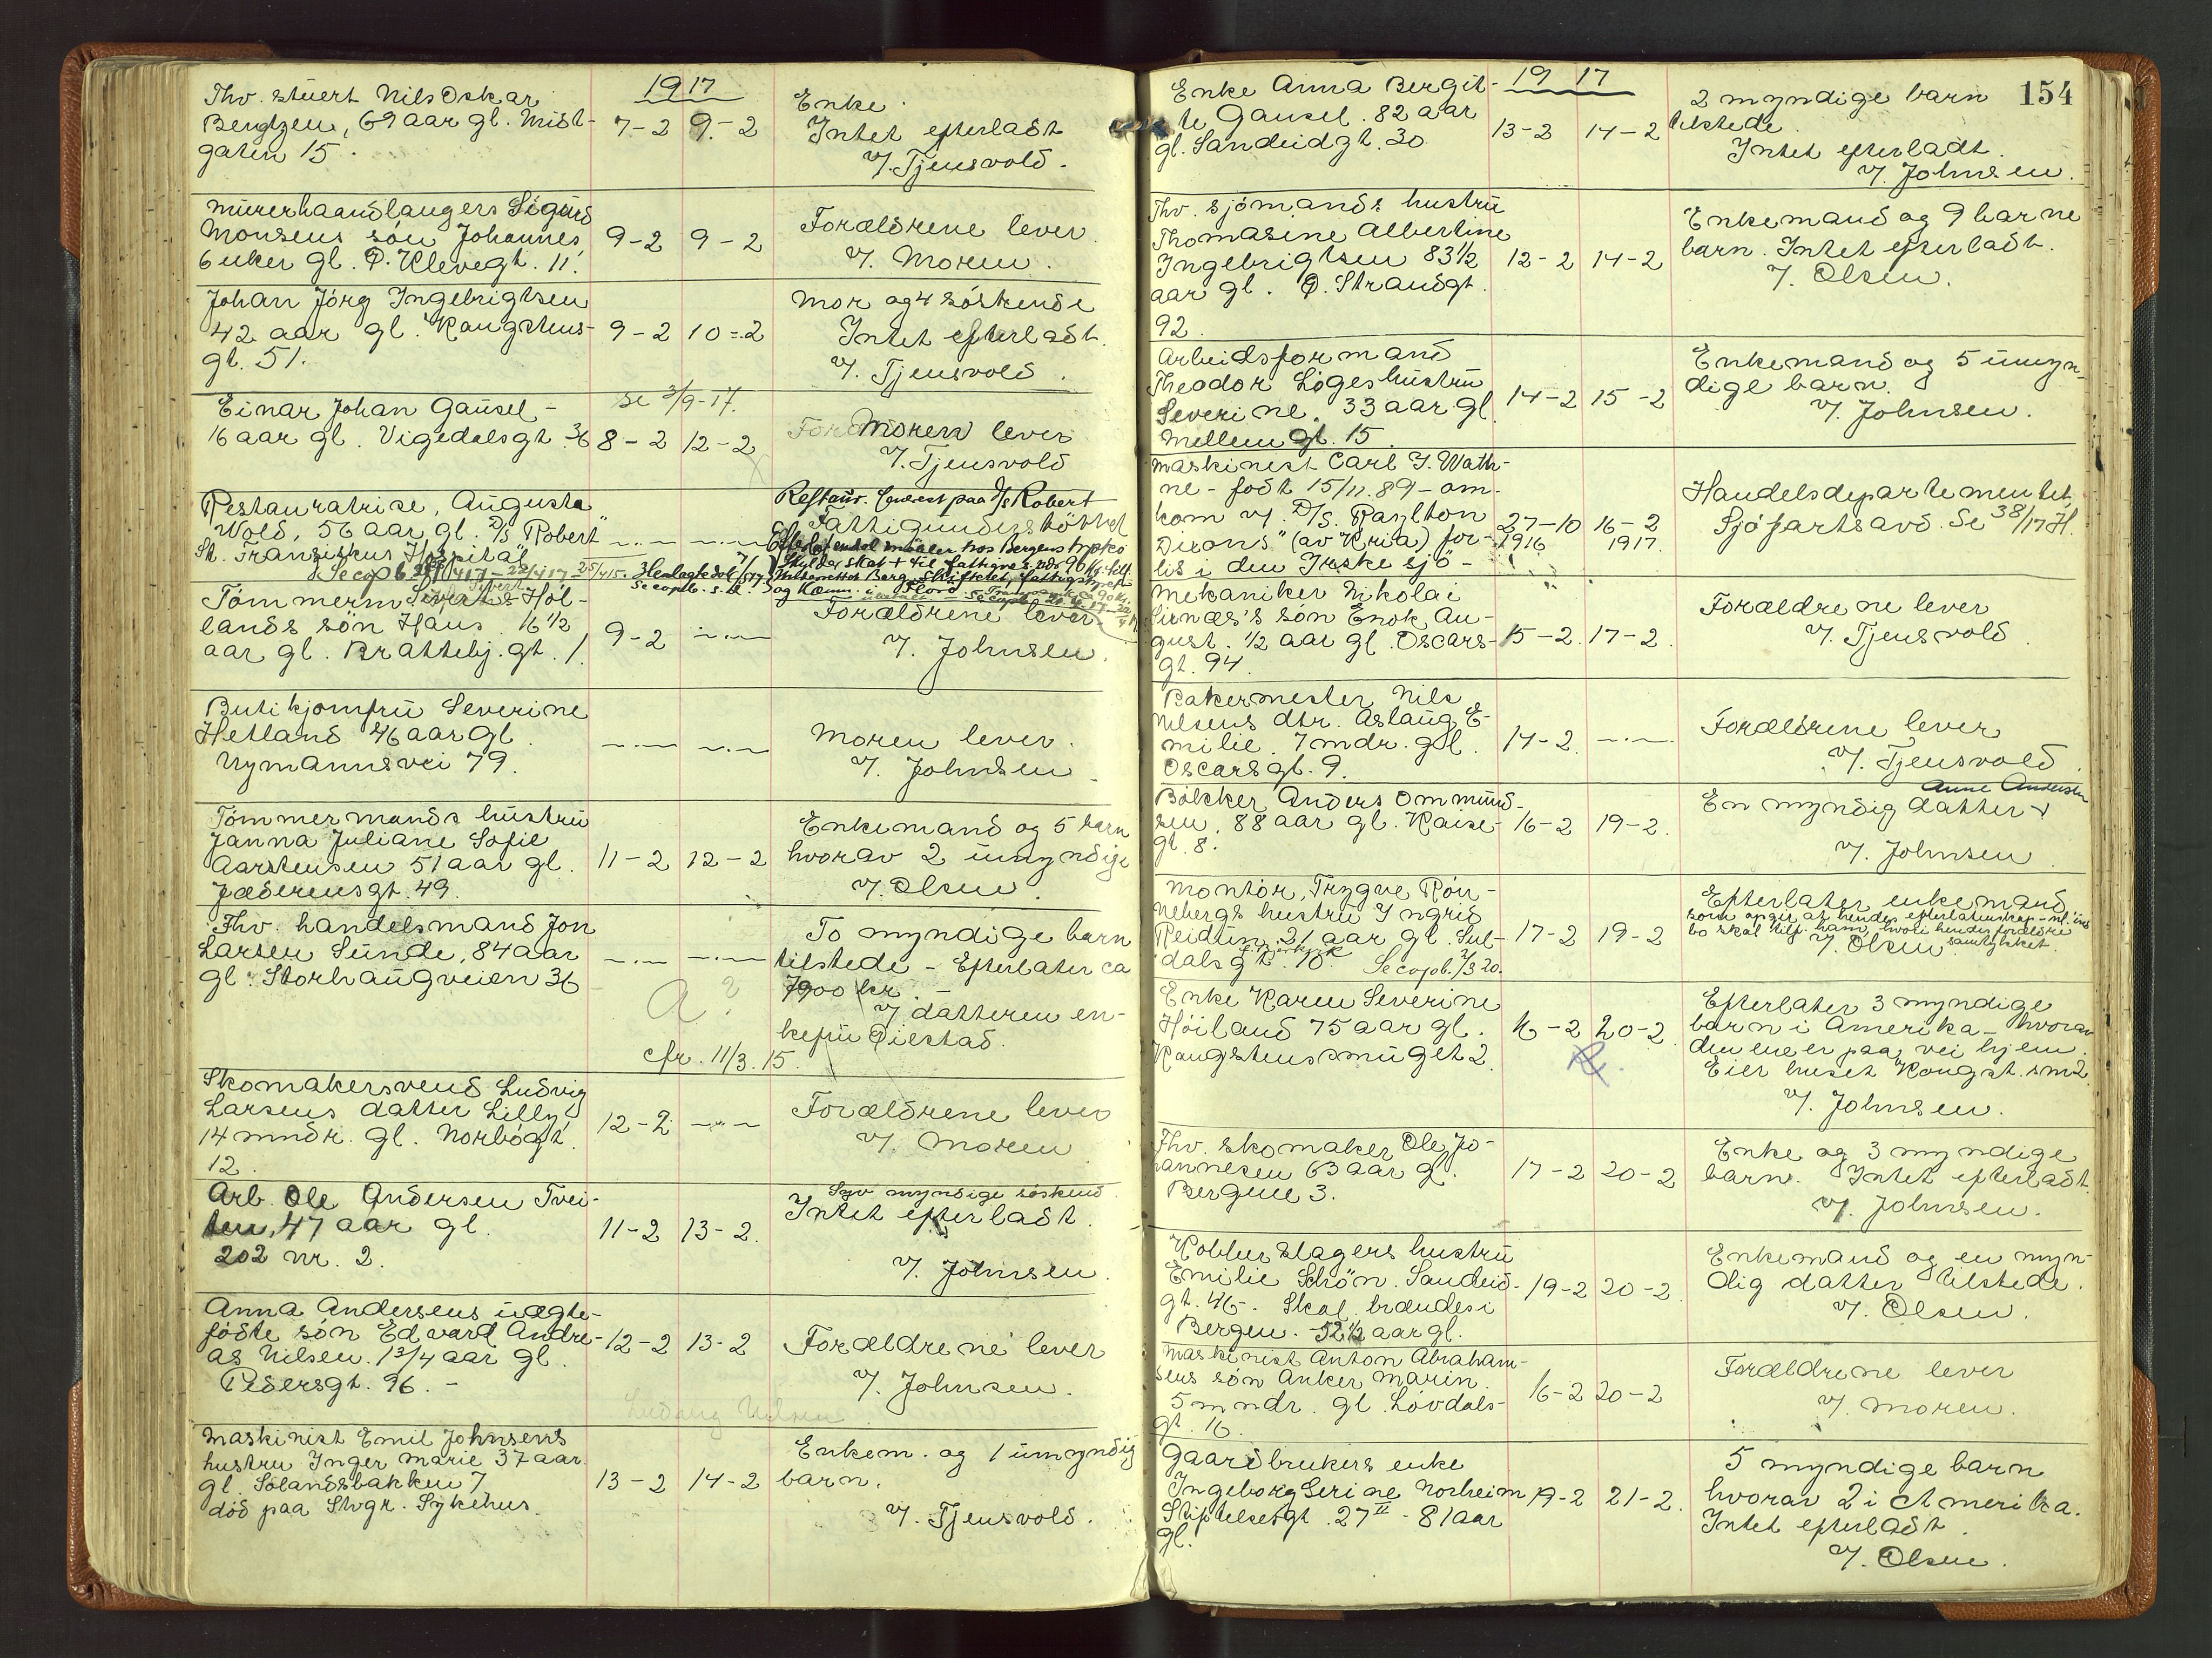 1917
Thv. stuert Nils Oskar
Bergtzen, 69 aar gl. Mist-
gaten 15.
7-2 9-2
Enke.
Intet efterladt
v/. Tjensvold.
Murerhaandlangers Sigurd
Monsens sön Johannes
6 uker gl. Ö. Klevegt. 11.
9-2 9-2
Forældrene lever.
v/. Moren.
Johan Jörg Ingebrigtsen
42 aar gl. Kongstens-
gt. 51.
9-2 10-2
Mor og 4 söskende
Intet efterladt.
v/. Tjensvold.
Einar Johan Gausel -
16 aar gl. Vigedalsgt. 36
se 3/9-17.
8-2 12-2
Moren lever
v/. Tjensvold
Restauratrise, Augusta
Wold, 56 aar gl. D/S "Robert"
St. Franziskus Hospital
-.- -.-
Restaur. paa D/S Robert
Tömmerm. Hol-
lands sön Hans 16 1/2
aar gl. Brattebj. gt. 1.
9-2 -.-
Forældrene lever
v/. Johnsen.
Butikjomfru Severine
Hetland 46 aar gl.
Nymannsvei 79.
-.- -.-
Moren lever.
v/. Johnsen.
Tömmermands hustru
Janna Juliane Sofie
Aarstensen 51 aar gl.
Jæderensgt. 49.
11-2 12-2
Enkemand og 5 barn
hvorav 2 umyndige
v/. Olsen.
Thv. handelsmand Jon
Larsen Sunde, 84 aar
gl. Storhaugveien 36
-.- -.-
a ?
To myndige barn
tilstede - Efterlater ca
7900 kr.
v/ datteren en-
kefru Oiestad.
cfr. 11/3.15.
Skomakersvend Ludvig
Larsens datter Lilly
14 mndr. gl. Norbögt.
12.
12-2 -.-
Forældrene lever
v/. Moren
Arb. Ole Andersen Tvei-
ten, 47 aar gl.
202 nr. 2.
11-2 13-2.
Syv myndige söskend.
Intet efterladt.
v/. Johnsen.
Anna Andersens uægte-
födte sön Edvard Andre-
as Nilsen. 1 3/4 aar gl.
Pedersgt. 96. -
12-2 13-2
Forældrene lever
v/. Johnsen.
Maskinist Emil Johnsens
hustru Inger Marie 37 aar
gl. Solandsbakken 7
död paa Stvgr. Sykehus.
13-2 14-2
Enkem. og 1 umyndig
barn.
v/. Tjensvold.
154
1917
Enke Anna Bergit-
te Gausel. 82 aar
gl. Sandeidgt. 30
13-2 14-2
2 myndige barn
tilstede.
Intet efterladt.
v/. Johnsen.
Thv. sjömands hustru
Thomasine Albertine
Ingebrigtsen 83 1/2
aar gl. Ö. Strandgt.
92.
12-2 14-2
Enkemand og 9 barne
barn. Intet efterladt.
v/. Olsen.
Arbeidsformand
Theodor Löges hustru
Severine. 33 aar gl.
Mellemgt. 15.
14-2 15-2
Enkemand og 5 umyn-
dige barn.
v/. Johnsen.
Maskinist Carl J. Wath-
ne - födt 15/11.89 - om-
kom v/. D/S.
Dixons" (av Kria) for-
lis i den Irske sjö -
27-10 16-2
1916 1917.
Handelsdepartementet,
Sjöfartsavd. Se 38/17 H.
Mekaniker Nikolai
Sirnæs's sön Enok, Au-
gust. 1/2 aar gl. Oscars-
gt. 94.
15-2. 17-2.
Forældrene lever
v/. Tjensvold
Bakermester Nils
Nilsens dtr. Aslaug E-
milie. 7 mdr. gl.
Oscarsgt. 9.
14-2. -.-
Forældrene lever
v/. Tjensvold.
Bökker Anders Ommund-
sen, 88 aar gl. Kaise-
gt. 8.
16-2 19-2.
Anne Andersen
En myndig datter
v/. Johnsen.
Montör, Trygve Rön-
nebergs hustru Ingrid
Reidun, 21 aar gl. Sul-
dalsgt. 10. Se copb. 2/3 20.
17-2 19-2
Efterlater enkemand
som opgir at hendes efterlatenskap
bo skal tilf. ham, hvori hendes forældre
v/. Olsen samtykket.
Enke Karen Severine
Höiland 75 aar gl.
Kongstenssmuget 2.
16-2 20-2
Efterlater 3 myndige
barn i Amerika - hvorav
den ene er paa vei hjem.
Eier huset Kongst. sm 2.
v/. Johnsen.
Thv. skomaker Ole Jo-
hannesen 63 aar gl.
Bergene 3.
17-2 20-2
Enke og 3 myndige
barn. Intet efterladt.
v/. Johnsen.
Kobberslagers hustru
Emilie Schön. Sandeid-
gt. 46 -. Skal brændes i
Bergen. 52 1/2 aar gl.
19-2 20-2.
Enkemand og en myn-
dig datter tilstede.
v/. Olsen.
Maskinist Anton Abraham-
sens sön Anker Marin.
5 mndr. gl. Lövdals-
gt. 16.
16-2 20-2
Forældrene lever
v/. Moren.
Gaardbrukers enke
Ingeborg Serine Norheim
Stiftelsesgt. 27 II - 81 aar
gl.
19-2 21-2.
5 myndige barn
hvorav 2 i Amerika.
Intet efterladt.
v/. Olsen.